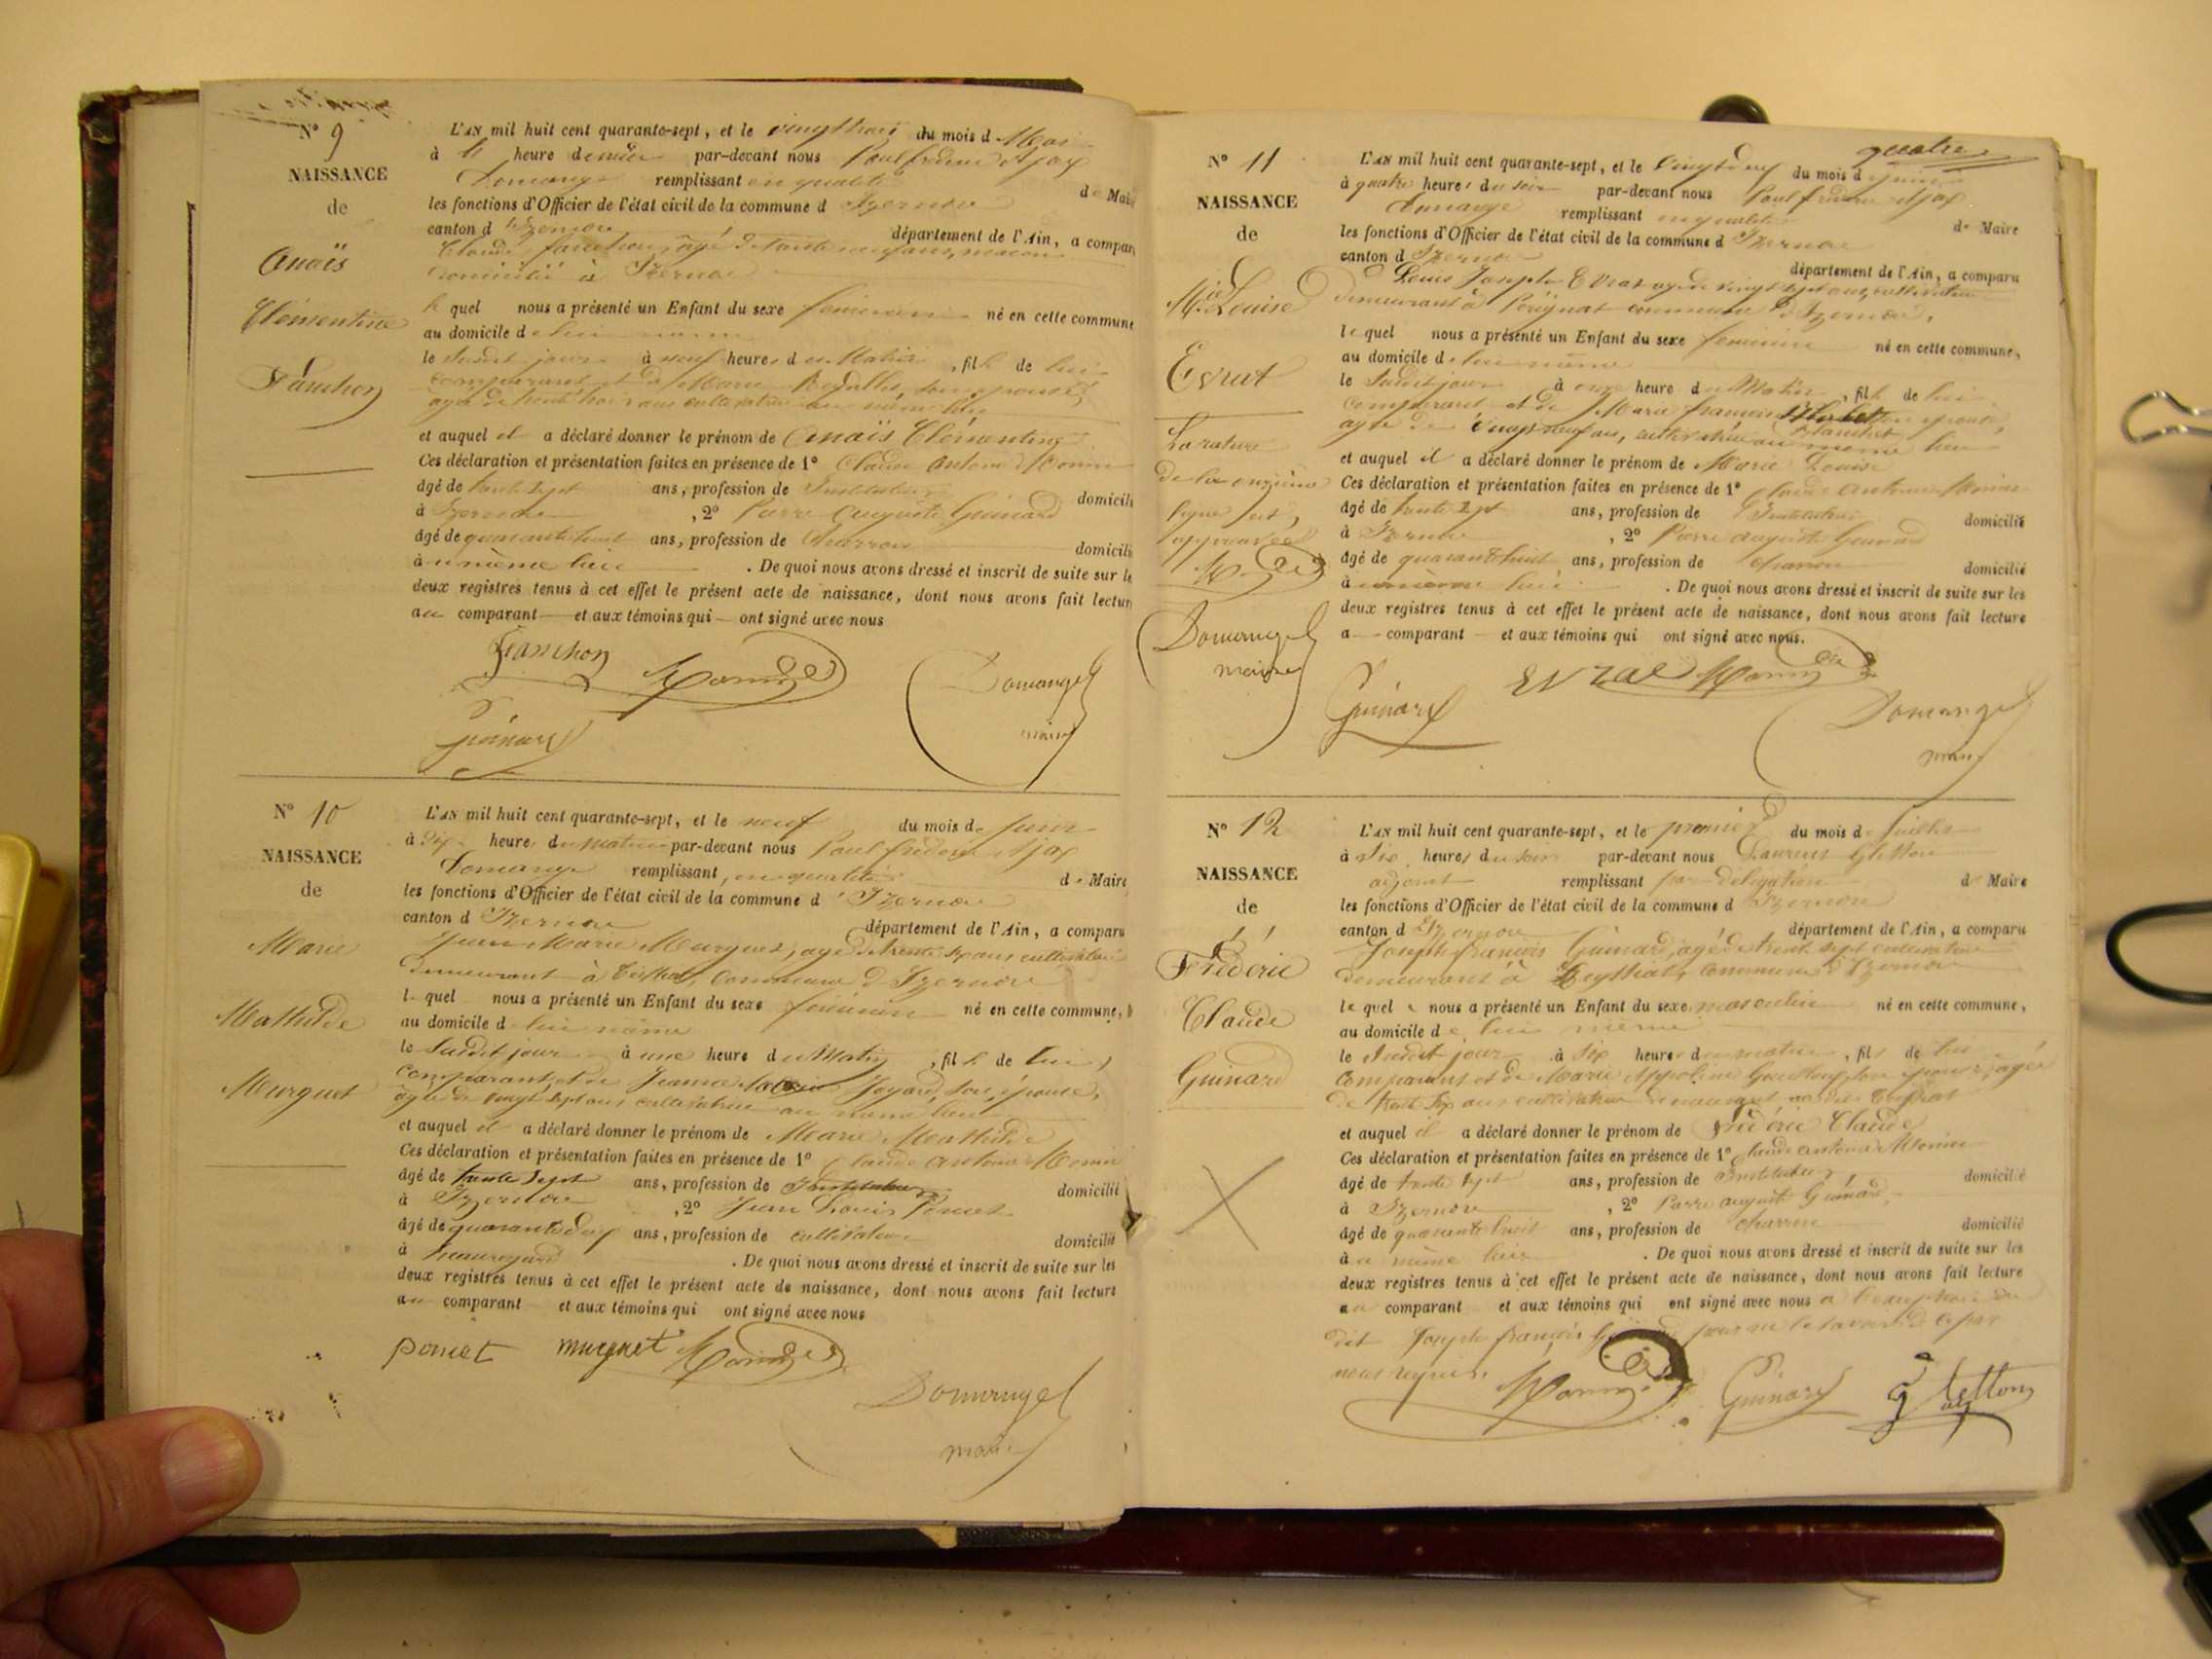 N° 9
NAISSANCE
de
Anaïs
Clémentine
Fanchon
L'AN mil huit cent quarante-sept, et le vingt trois du mois d Mai
à heure par-devant nous Paul frédéric Ajax
Domange remplissant en qualité de Maire
les fonctions d'Officier de l'état civil de la commune d Izernore
canton d Izernore département de l'Ain, a comparu
Claude fanchon, âgé de trente ans, maçon
domicilié à Izernore
le quel nous a présenté un Enfant du sexe féminin né en cette commune
au domicile de lui même
le Susdit jour à neuf heures du Matin, fille de lui
comparant et de Marie son épouse,
agée de trente trois ans cultivatrice au même lieu
et auquel il a déclaré donner le prénom de Anaïs Clémentine
Ces déclaration et présentation faites en présence de 1° Claude Antoine Monin
âgé de trente sept ans, profession de Instituteur domicilié
à Izernore, 2° Pierre Auguste Guinard
âgé de quarante huit ans, profession de Charron domicilié
au même lieu. De quoi nous avons dressé et inscrit de suite sur les
deux registres tenus à cet effet le présent acte de naissance, dont nous avons fait lecture
au comparant et aux témoins qui ont signé avec nous
fanchon Monin Domange
Guinard maire
N° 10
NAISSANCE
de
Marie
Mathilde
Murguet
L'AN mil huit cent quarante-sept, et le neuf du mois de Juin
à Dix heures du Matin par-devant nous Paul frédéric Ajax
Domange remplissant en qualité de Maire
les fonctions d'Officier de l'état civil de la commune d'Izernore
canton d Izernore département de l'Ain, a comparu
Jean Marie Murguet, agé de trente six ans cultivateur
demeurant à Ceyssiat, Commune d'Izernore
le quel nous a présenté un Enfant du sexe féminin né en cette commune,
au domicile de lui même
le Susdit jour à une heure du Matin, fille de lui
comparant et de Jeanne Joyard, son épouse,
agée de vingt sept ans cultivatrice au même lieu
et auquel il a déclaré donner le prénom de Marie Mathilde
Ces déclaration et présentation faites en présence de 1° Claude Antoine Monin
âgé de trente sept ans, profession de Instituteur domicilié
à Izernore, 2° Jean Louis Poncet
âgé de quarante deux ans, profession de cultivateur domicilié
à beauregard. De quoi nous avons dressé et inscrit de suite sur les
deux registres tenus à cet effet le présent acte de naissance, dont nous avons fait lecture
au comparant et aux témoins qui ont signé avec nous
poncet murguet Monin
Domange
maire
quatre
N° 11
NAISSANCE
de
Mie Louise
Evrat
La rature
de la onzième
ligne est
approuvée
Domange
maire
L'AN mil huit cent quarante-sept, et le vingt deux du mois de juin
à quatre heures du soir par-devant nous Paul frédéric Ajax
Domange remplissant en qualité de Maire
les fonctions d'Officier de l'état civil de la commune d Izernore
canton d Izernore département de l'Ain, a comparu
Louis Joseph Evrat agé de vingt sept ans, cultivateur
demeurant à Pérignat commune d'Izernore,
le quel nous a présenté un Enfant du sexe féminin né en cette commune,
au domicile de lui même
le Susdit jour à onze heure du Matin, fille de lui
comparant et de Marie françoise son épouse,
agée de vingt neuf ans, cultivatrice au même lieu
et auquel il a déclaré donner le prénom de Marie Louise
Ces déclaration et présentation faites en présence de 1° Claude Antoine Monin
âgé de trente sept ans, profession de Instituteur domicilié
à Izernore, 2° Pierre auguste Guinard
âgé de quarante huit ans, profession de charron domicilié
au même lieu. De quoi nous avons dressé et inscrit de suite sur les
deux registres tenus à cet effet le présent acte de naissance, dont nous avons fait lecture
a comparant et aux témoins qui ont signé avec nous.
Guinard Evrat Monin Domange
maire
N° 12
NAISSANCE
de
Frédéric
Claude
Guinard
L'AN mil huit cent quarante-sept, et le premier du mois de Juillet
à six heures du soir par-devant nous Laurent Gletton
adjoint remplissant par délégation de Maire
les fonctions d'Officier de l'état civil de la commune d Izernore
canton d Izernore département de l'Ain, a comparu
Joseph françois Guinard, agé de trente sept cultivateur
demeurant à Ceyssiat, commune d'Izernore
le quel nous a présenté un Enfant du sexe masculin né en cette commune,
au domicile de lui même
le Susdit jour à six heures du matin, fils de lui
comparant et de Marie Appoline son épouse, agée
de trente six ans cultivatrice demeurant au dit Ceyssiat
et auquel il a déclaré donner le prénom de Frédéric Claude
Ces déclaration et présentation faites en présence de 1° Claude antoine Monin
âgé de trente sept ans, profession de Instituteur domicilié
à Izernore, 2° Pierre auguste Guinard,
âgé de quarante huit ans, profession de charron domicilié
au même lieu. De quoi nous avons dressé et inscrit de suite sur les
deux registres tenus à cet effet le présent acte de naissance, dont nous avons fait lecture
au comparant et aux témoins qui ont signé avec nous a l'exception du
dit Joseph françois pour ne le savoir de ce par
nous requis.
Monin Guinard Gletton
adj